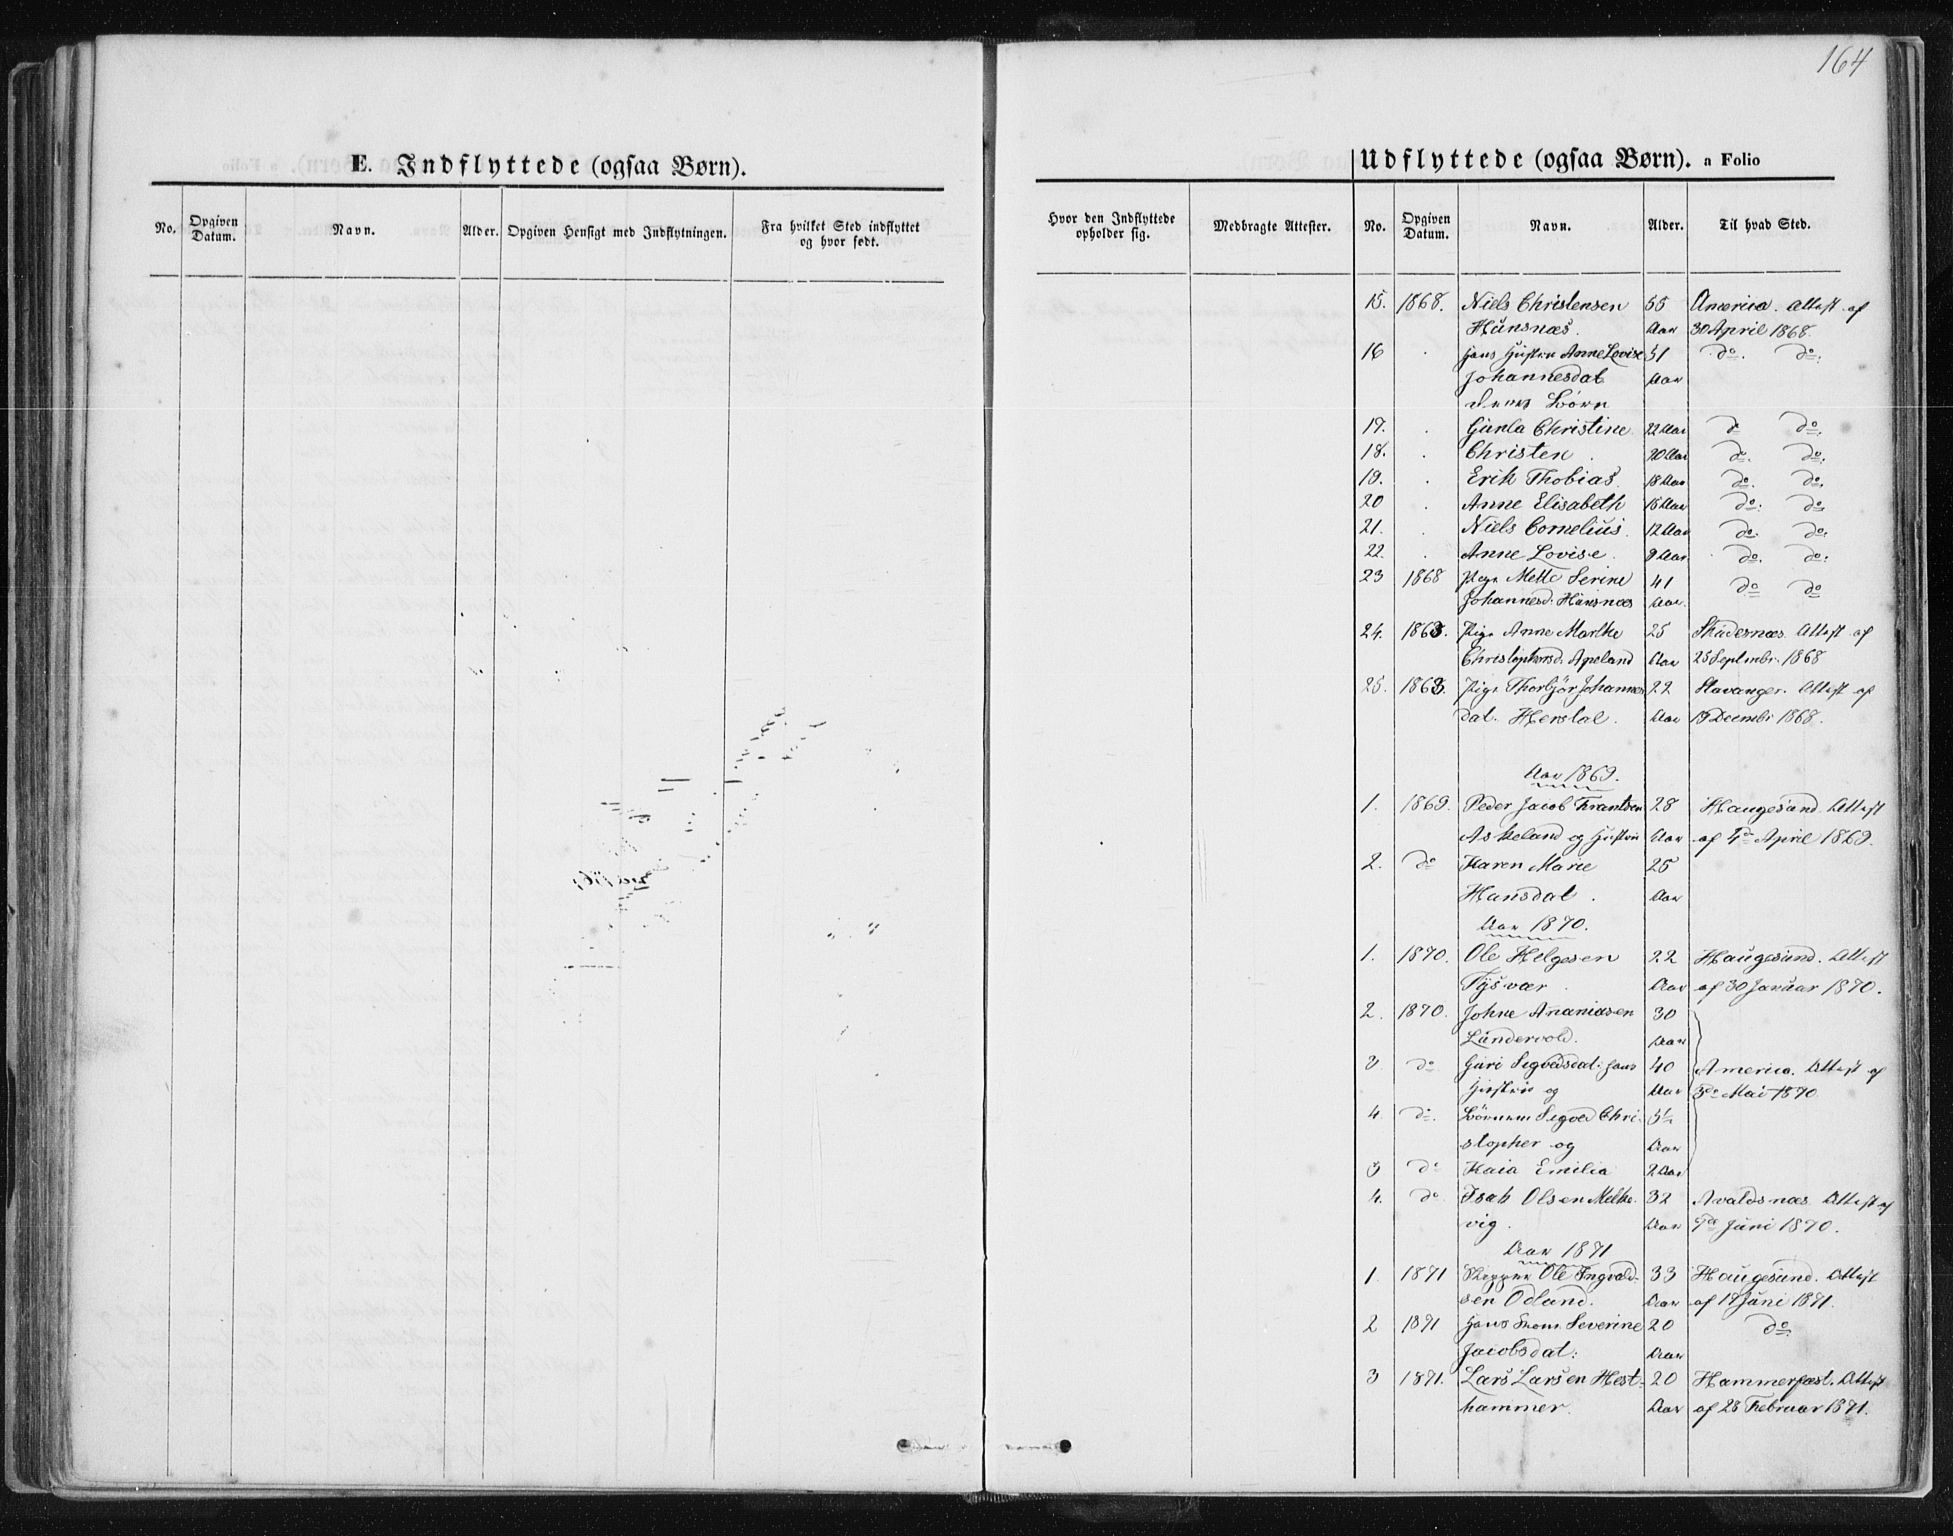 164
E. Indflyttede (ogsaa Børn).
Udflyttede (ogsaa Børn). a Folio
No. Opgiven Datum. Navn. Alder. Opgiven Hensigt med Indflytningen. Fra hvilket Sted indflyttet og hvor født.
Hvor den Indflyttede opholder sig. Medbragte Attester. No. Opgiven Datum. Navn. Alder. Til hvad Sted.
15. 1868. Niels Christensen 55 America. Attest af
Hünsnæs. Aar 30 April 1868
16 . Hans Hustru Anne Lovise 51 do. do.
Johannesdat Aar
Børn
17. . Gunla Christine 22 Aar d do.
18. . Christen . 20 Aar do. do.
19. . Erik Thobias. 18 Aar do. do.
20 . Anne Elisabeth 15 Aar do. do
21. . Niels Cornelius. 12 Aar do. do.
22. . Anne Lovise. 9 Aar do. do.
23 1868 Pige Mette Serine 41 do do
Johannesd: Hünsnæs Aar.
24. 1868. Pige Anne Marthe 25 Skudesnæs. Attest af
Christophersd. Apeland Aar 25 Septembr. 1868
25. 1868. Pige Thorbjør Johannes 22 Stavanger. Attest af
dat. Herstal. Aar 19 Decembr 1868.
Aar 1869.
1. 1869. Peder Jacob Frantsen 28 Haugesund. Attest
Askeland og Hustru Aar af 4de April 1869.
2. do Karen Marie 25
Hansdat . Aar
Aar 1870.
1. 1870. Ole Helgesen 22 Haugesund. Attest
Tysvær . Aar af 30 Januar 1870.
2. 1870. Johne Ananiasen 30
Landervold. Aar
3 do Guri Segvedsdat: Hans 40 America. Attest af
Hustru og Aar 3de Mai 1870.
4. do. Børnene Segved Chri-
stopher og Aar
3 do Kaia Emilia 2 Aar
4. do Isak Olsen Melke- 32 Avaldsnæs Attest af
vig. Aar 9de Juni 1870.
Aar 1871
1. 1871 Skipper Ole Ingvald- 33 Haugesund. Attest
sen Odland. Aar af 19 Juni 1871.
2 1871 Hans Kone Severine 20 do
Jacobsdat: Aar
3 1871. Lars Larsen Hest- 20 Hammerfest. Attest
hammer. Aar af 28 Februar 1871.